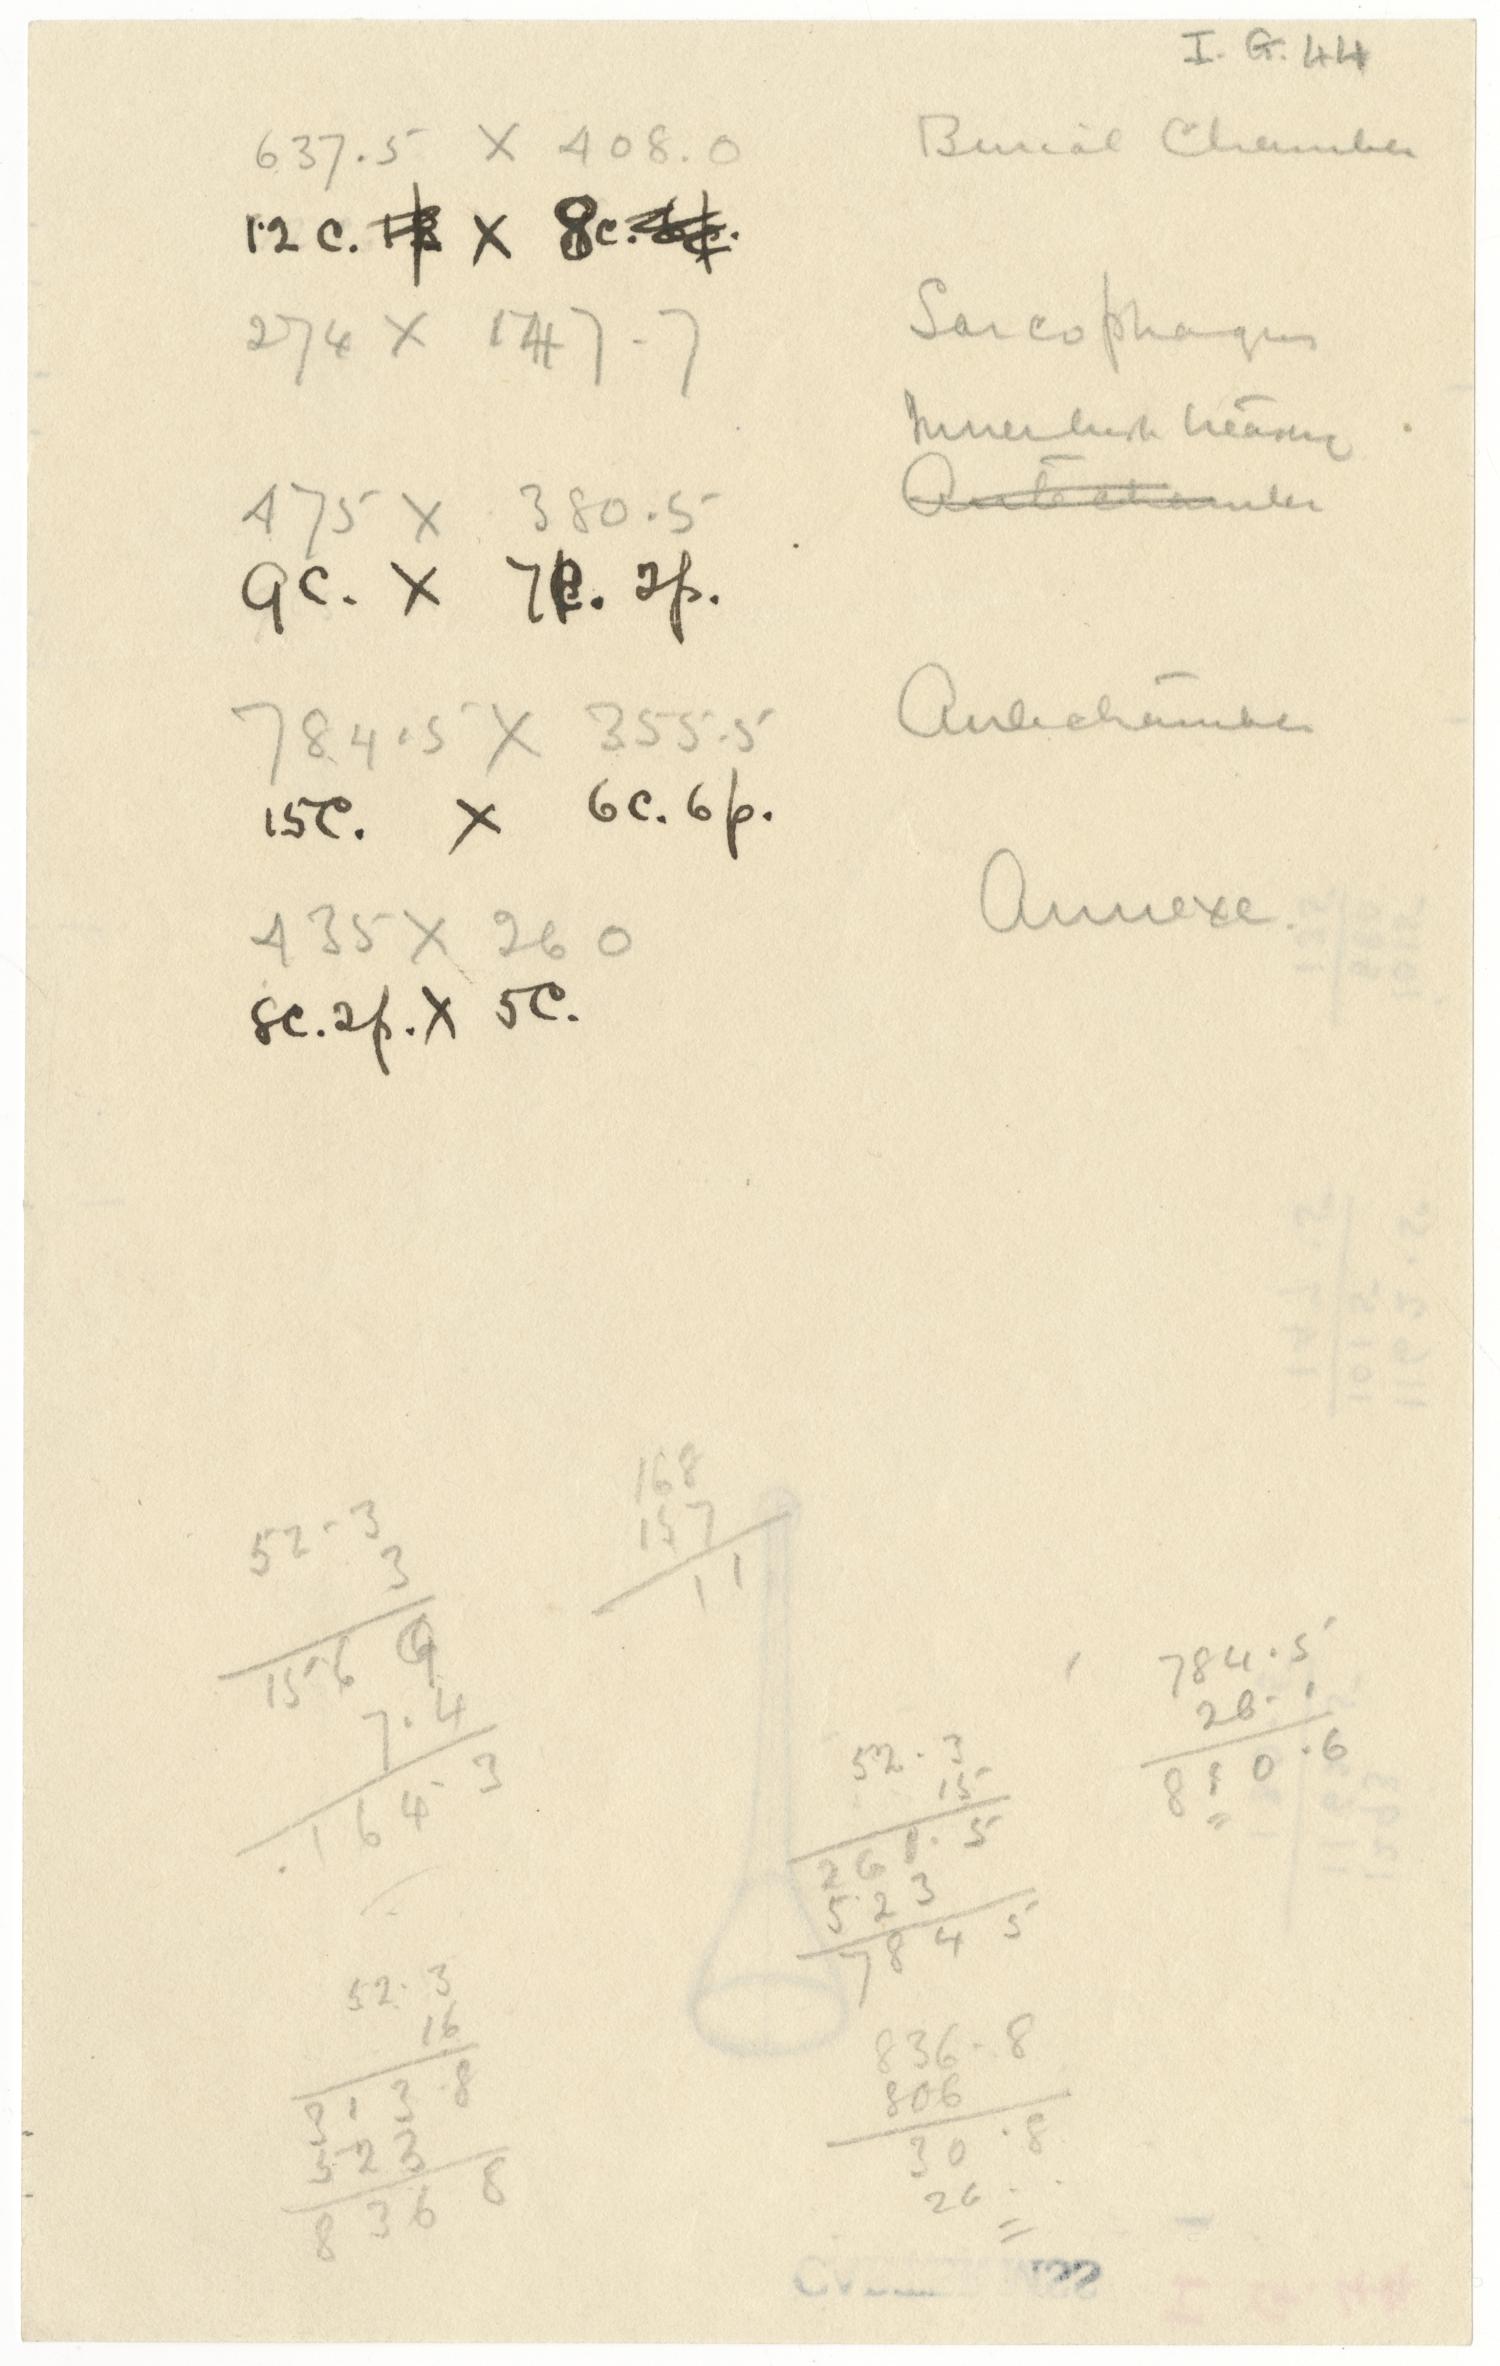 I. G. 44
637.5 X 408.0 Burial Chamber
12 c. X 8c.
274 X 147.7 Sarcophagus
Innermost Treasury
475 X 380.5 Antechamber
9c. X 7c. 2p.
784.5 X 355.5 Antechamber
15c. X 6c. 6p.
435 X 260 Annexe.
8c. 2p. X 5c.
168
157
11
52.3
3
156 9
7.4
164 3
784.5
26.1
810.6
52.3
15
261.5
523
784 5
52.3
16
313.8
523
836 8
836.8
806
30.8
26